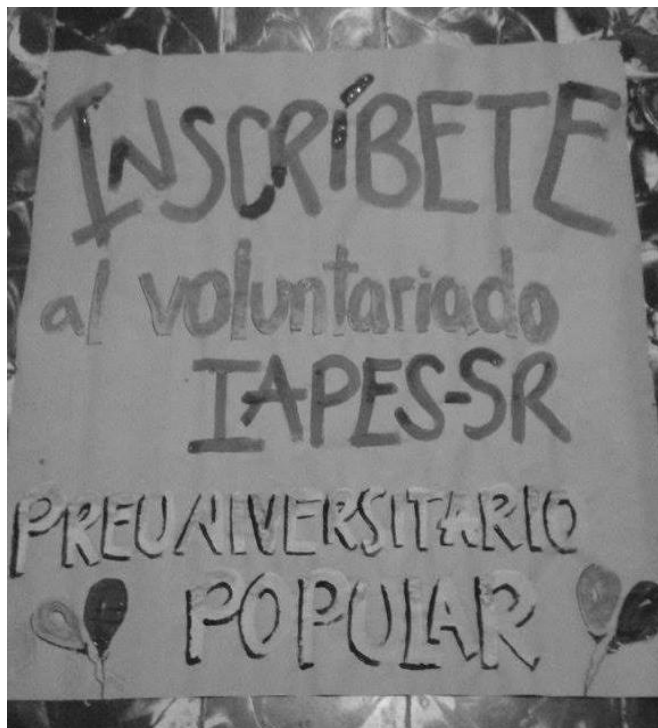 INSCRÍBETE
al voluntariado
IAPES-SR
PREUNIVERSITARIO
POPULAR